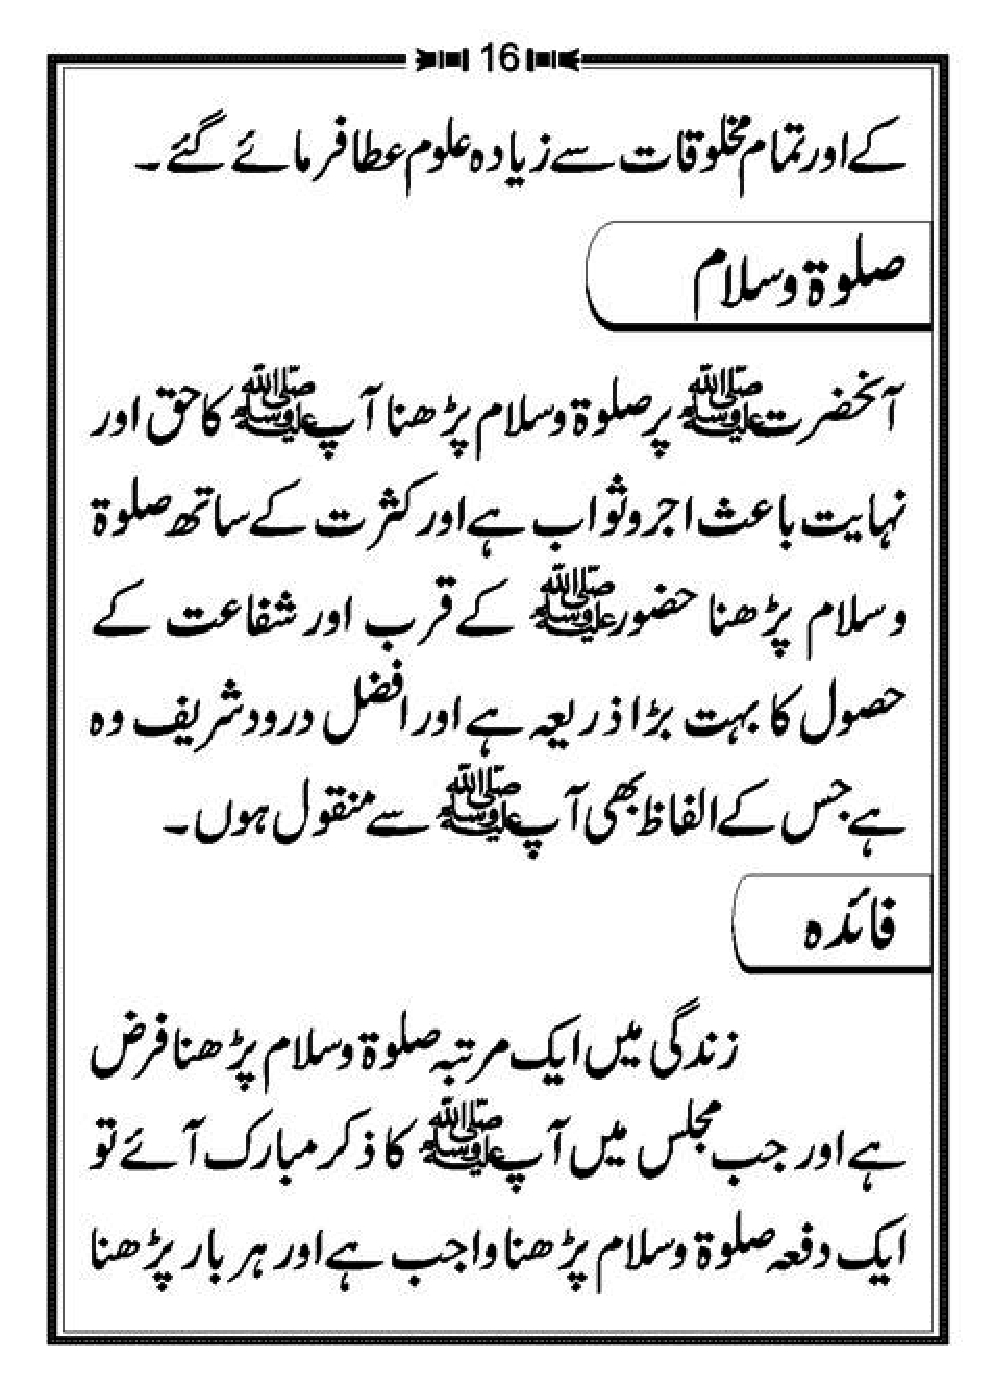 16
کے اور تمام مخلوقات سے زیادہ علوم عطا فرمائے گئے ۔
صلوۃ وسلام
آنحضرت ﷺ پر صلوۃ وسلام پڑھنا آپ ﷺ کا حق اور
نہایت باعث اجر وثواب ہے اور کثرت کے ساتھ صلوۃ
وسلام پڑھنا حضور ﷺ کے قرب اور شفاعت کے
حصول کا بہت بڑا ذریعہ ہے اور افضل درود شریف وہ
ہے جس کے الفاظ بھی آپ ﷺ سے منقول ہوں۔
فائدہ
زندگی میں ایک مرتبہ صلوۃ وسلام پڑھنا فرض
ہے اور جب مجلس میں آپ ﷺ کا ذکر مبارک آئے تو
ایک دفعہ صلوۃ وسلام پڑھنا واجب ہے اور ہر بار پڑھنا